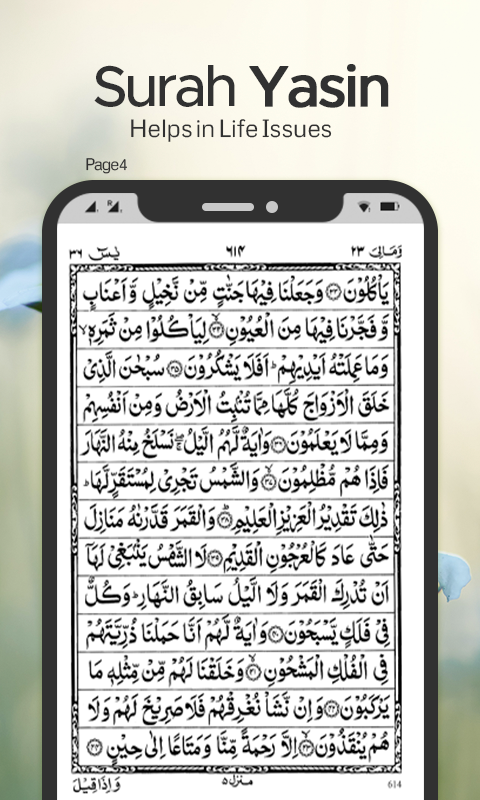 Surah Yasin
Helps in Life Issues
Page4
R
وَمَالِيَ ٢٣ ٦١٤ يٰسٓ ٣٦
يَاْكُلُوْنَ ﴿٣٣﴾ وَجَعَلْنَا فِيْهَا جَنّٰتٍ مِّنْ نَّخِيْلٍ وَّاَعْنَابٍ
وَّفَجَّرْنَا فِيْهَا مِنَ الْعُيُوْنِ ﴿٣٤﴾ لِيَاْكُلُوْا مِنْ ثَمَرِهٖ ۙ
وَمَا عَمِلَتْهُ اَيْدِيْهِمْ ؕ اَفَلَا يَشْكُرُوْنَ ﴿٣٥﴾ سُبْحٰنَ الَّذِيْ
خَلَقَ الْاَزْوَاجَ كُلَّهَا مِمَّا تُنْۢبِتُ الْاَرْضُ وَمِنْ اَنْفُسِهِمْ
وَمِمَّا لَا يَعْلَمُوْنَ ﴿٣٦﴾ وَاٰيَةٌ لَّهُمُ الَّيْلُ ۚ نَسْلَخُ مِنْهُ النَّهَارَ
فَاِذَا هُمْ مُّظْلِمُوْنَ ﴿٣٧﴾ وَالشَّمْسُ تَجْرِيْ لِمُسْتَقَرٍّ لَّهَا ؕ
ذٰلِكَ تَقْدِيْرُ الْعَزِيْزِ الْعَلِيْمِ ﴿٣٨﴾ وَالْقَمَرَ قَدَّرْنٰهُ مَنَازِلَ
حَتّٰى عَادَ كَالْعُرْجُوْنِ الْقَدِيْمِ ﴿٣٩﴾ لَا الشَّمْسُ يَنْۢبَغِيْ لَهَاۤ
اَنْ تُدْرِكَ الْقَمَرَ وَلَا الَّيْلُ سَابِقُ النَّهَارِ ؕ وَكُلٌّ
فِيْ فَلَكٍ يَّسْبَحُوْنَ ﴿٤٠﴾ وَاٰيَةٌ لَّهُمْ اَنَّا حَمَلْنَا ذُرِّيَّتَهُمْ
فِي الْفُلْكِ الْمَشْحُوْنِ ﴿٤١﴾ وَخَلَقْنَا لَهُمْ مِّنْ مِّثْلِهٖ مَا
يَرْكَبُوْنَ ﴿٤٢﴾ وَاِنْ نَّشَاْ نُغْرِقْهُمْ فَلَا صَرِيْخَ لَهُمْ وَلَا
هُمْ يُنْقَذُوْنَ ﴿٤٣﴾ اِلَّا رَحْمَةً مِّنَّا وَمَتَاعًا اِلٰى حِيْنٍ ﴿٤٤﴾
614 منزل٥ وَاِذَا قِيْلَ